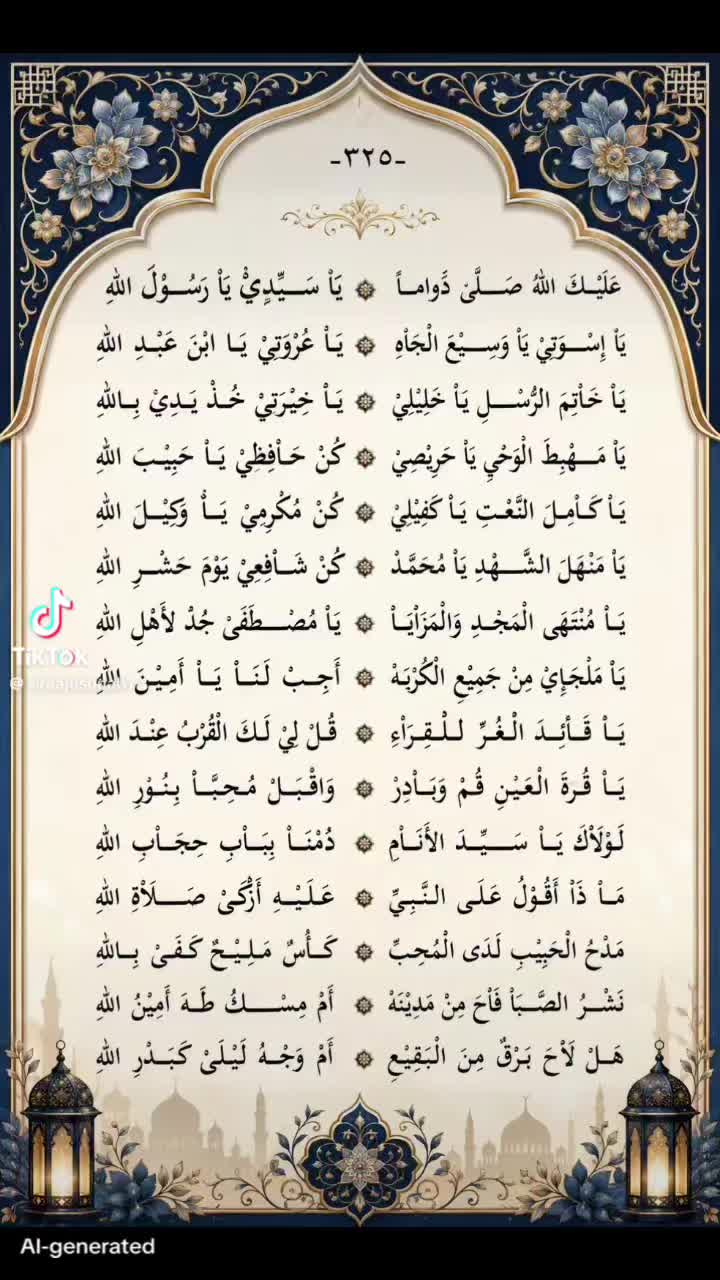 -٣٢٥-
عَلَيْكَ اللهُ صَلَّىٰ دَواماً ۞ يَاْ سَيِّدِيْ يَاْ رَسُوْلَ اللهِ
يَاْ إِسْوَتِيْ يَاْ وَسِيْعَ الْجَاْهِ ۞ يَاْ عُرْوَتِيْ يَا ابْنَ عَبْدِ اللهِ
يَاْ خَاْتِمَ الرُّسْلِ يَاْ خَلِيْلِيْ ۞ يَاْ خِيْرَتِيْ خُذْ يَدِيْ بِاللهِ
يَاْ مَهْبِطَ الْوَحْيِ يَاْ حَرِيْصِيْ ۞ كُنْ حَاْفِظِيْ يَاْ حَبِيْبَ اللهِ
يَاْ كَاْمِلَ النَّعْتِ يَاْ كَفِيْلِيْ ۞ كُنْ مُكْرِمِيْ يَاْ وَكِيْلَ اللهِ
يَاْ مَنْهَلَ الشَّهْدِ يَاْ مُحَمَّدْ ۞ كُنْ شَاْفِعِيْ يَوْمَ حَشْرِ اللهِ
يَاْ مُنْتَهَى الْمَجْدِ وَالْمَزَاْيَاْ ۞ يَاْ مُصْطَفَىْ جُدْ لأَهْلِ اللهِ
يَاْ مَلْجَإِيْ مِنْ جَمِيْعِ الْكُرْبَهْ ۞ أَجِبْ لَنَاْ يَاْ أَمِيْنَ اللهِ
يَاْ قَاْئِدَ الْغُرِّ لِلْقِرَاْءِ ۞ قُلْ لِيْ لَكَ الْقُرْبُ عِنْدَ اللهِ
يَاْ قُرةَ الْعَيْنِ قُمْ وَبَاْدِرْ ۞ وَاقْبَلْ مُحِبَّاْ بِنُوْرِ اللهِ
لَوْلَاْكَ يَاْ سَيِّدَ الأَنَاْمِ ۞ دُمْنَاْ بِبَاْبِ حِجَاْبِ اللهِ
مَاْ ذَاْ أَقُوْلُ عَلَى النَّبِيِّ ۞ عَلَيْهِ أَزْكَىْ صَلَاْةِ اللهِ
مَدْحُ الْحَبِيْبِ لَدَى الْمُحِبِّ ۞ كَأْسٌ مَلِيْحٌ كَفَىْ بِاللهِ
نَشْرُ الصَّبَاْ فَاْحَ مِنْ مَدِيْنَهْ ۞ أَمْ مِسْكُ طَهَ أَمِيْنُ اللهِ
هَلْ لَاْحَ بَرْقٌ مِنَ الْبَقِيْعِ ۞ أَمْ وَجْهُ لَيْلَىْ كَبَدْرِ اللهِ
TikTok
AI-generated